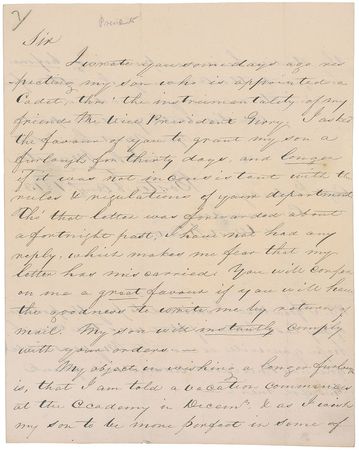 Private
Sir
I wrote you some days ago res
pecting my son who is appointed a
Cadet, thro' the instrumentality of my
friend the Vice President Gerry. I asked
the favour of you to grant my son a
furlough for thirty days, and longer
if it was not inconsistant with the
rules & regulations of your department
Tho' that letter was forwarded about
a fortnight past, I have not had any
reply, which makes me fear that my
letter has miscarried. You will confer
on me a great favour if you will have
the goodness to write me by return of
mail. My son will instantly comply
with your orders —
My object in wishing a longer furlough
is, that I am told a vacation commences
at the Academy in Decemr. & as I wish
my son to be more perfect in some of